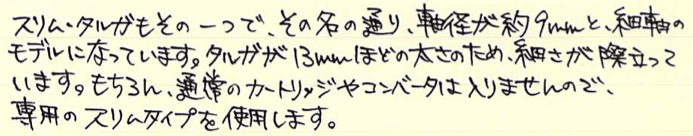 スリム・タルガもその一つで、その名の通り、軸径が約9mmと、細軸の
モデルになっています。タルガが13mmほどの太さのため、細さが際立って
います。もちろん、通常のカートリッジやコンバータは入りませんので、
専用のスリムタイプを使用します。